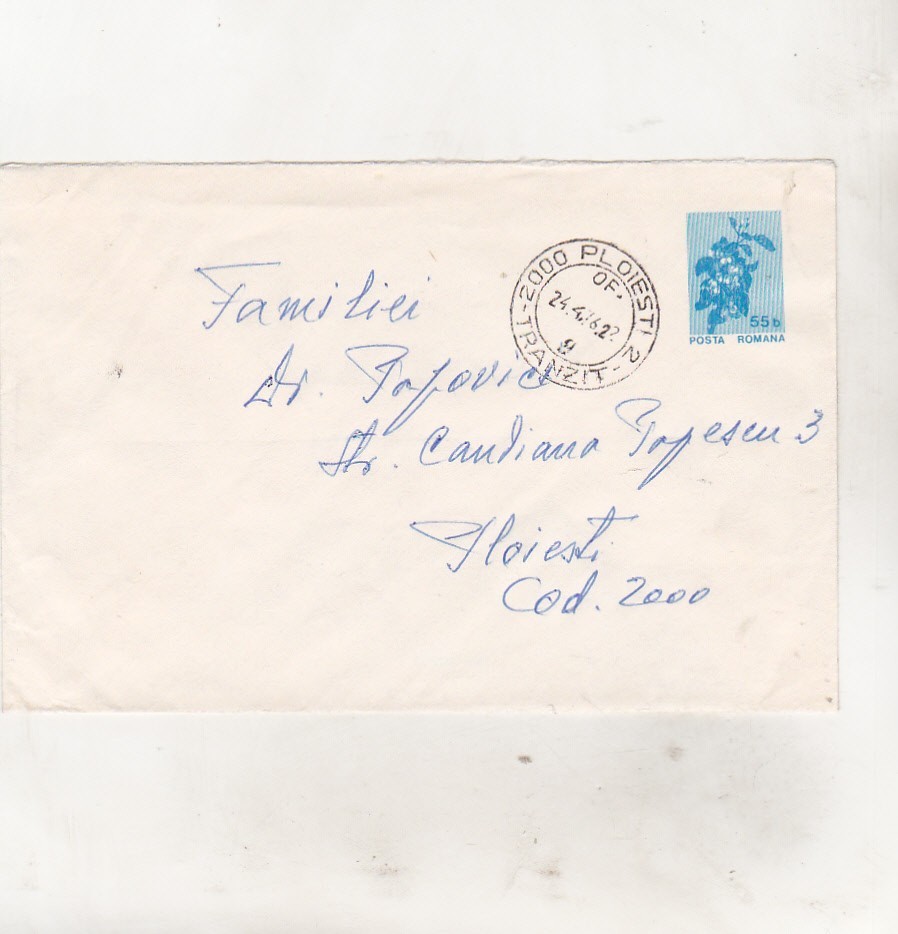 2000 PLOIESTI 2
OF.
24.4.76.22
TRANZIT
55 b
POSTA ROMANA
Familiei
Dr. Popovici
Str. Candiano Popescu 3
Ploiesti
Cod. 2000